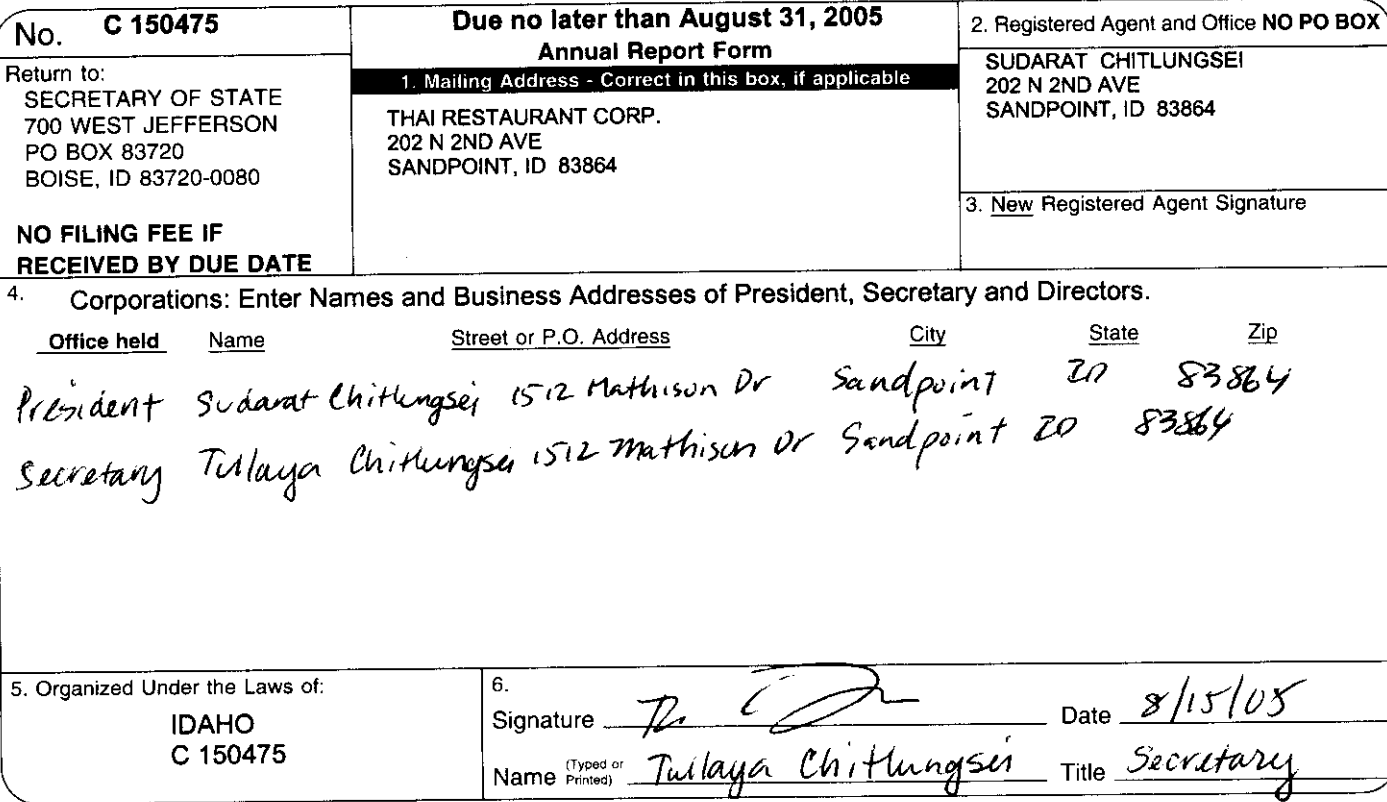 No. C 150475
Return to:
SECRETARY OF STATE
700 WEST JEFFERSON
PO BOX 83720
BOISE, ID 83720-0080
NO FILING FEE IF
RECEIVED BY DUE DATE
Due no later than August 31, 2005
Annual Report Form
1. Mailing Address - Correct in this box, if applicable
THAI RESTAURANT CORP.
202 N 2ND AVE
SANDPOINT, ID 83864
2. Registered Agent and Office NO PO BOX
SUDARAT CHITLUNGSEI
202 N 2ND AVE
SANDPOINT, ID 83864
3. New Registered Agent Signature
4. Corporations: Enter Names and Business Addresses of President, Secretary and Directors.
Office held Name Street or P.O. Address City State Zip
President Sudarat Chitlungsei 1512 Mathison Dr Sandpoint ID 83864
Secretary Chitlungsei 1512 Mathison Dr Sandpoint ID 83864
5. Organized Under the Laws of:
IDAHO
C 150475
6.
Signature Date 8/15/05
Name (Typed or Printed) Chitlungsei Title Secretary